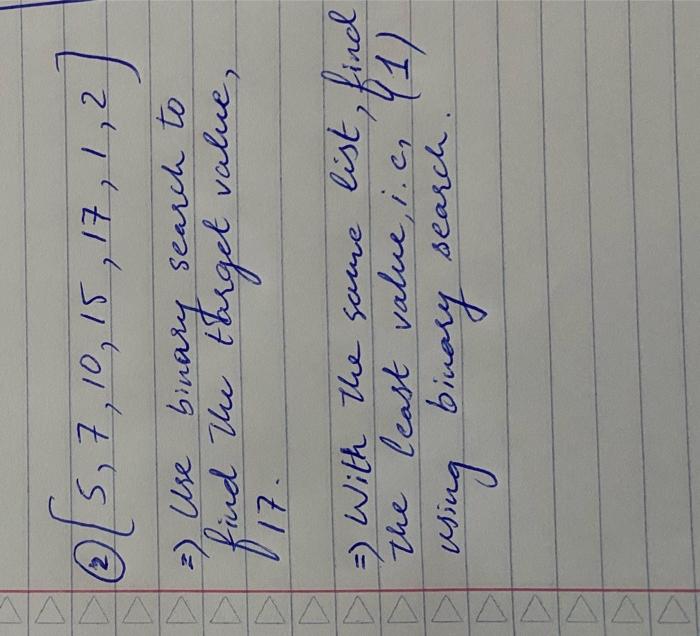 ② [5, 7, 10, 15, 17, 1, 2]
=) Use binary search to
find the target value,
17.
=) With the same list, find
the least value, i.e, (1)
using binary search.